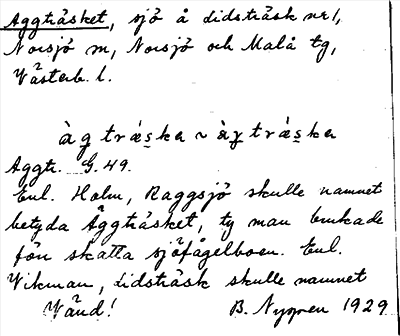 Aggträsket, sjö å Lidsträsk nr 1,
Norsjö sn, Norsjö och Malå tg,
Västerb. l.
àg træ̀s̠ka ~ àg træ̀s̠ka
Aggtr. G. 49.
Enl. Holm, Raggsjö skulle namnet
betyda Äggträsket, ty man brukade
förr skatta sjöfågelboen. Enl.
Wikman, Lidsträsk skulle namnet
Vänd! B. Nygren 1929